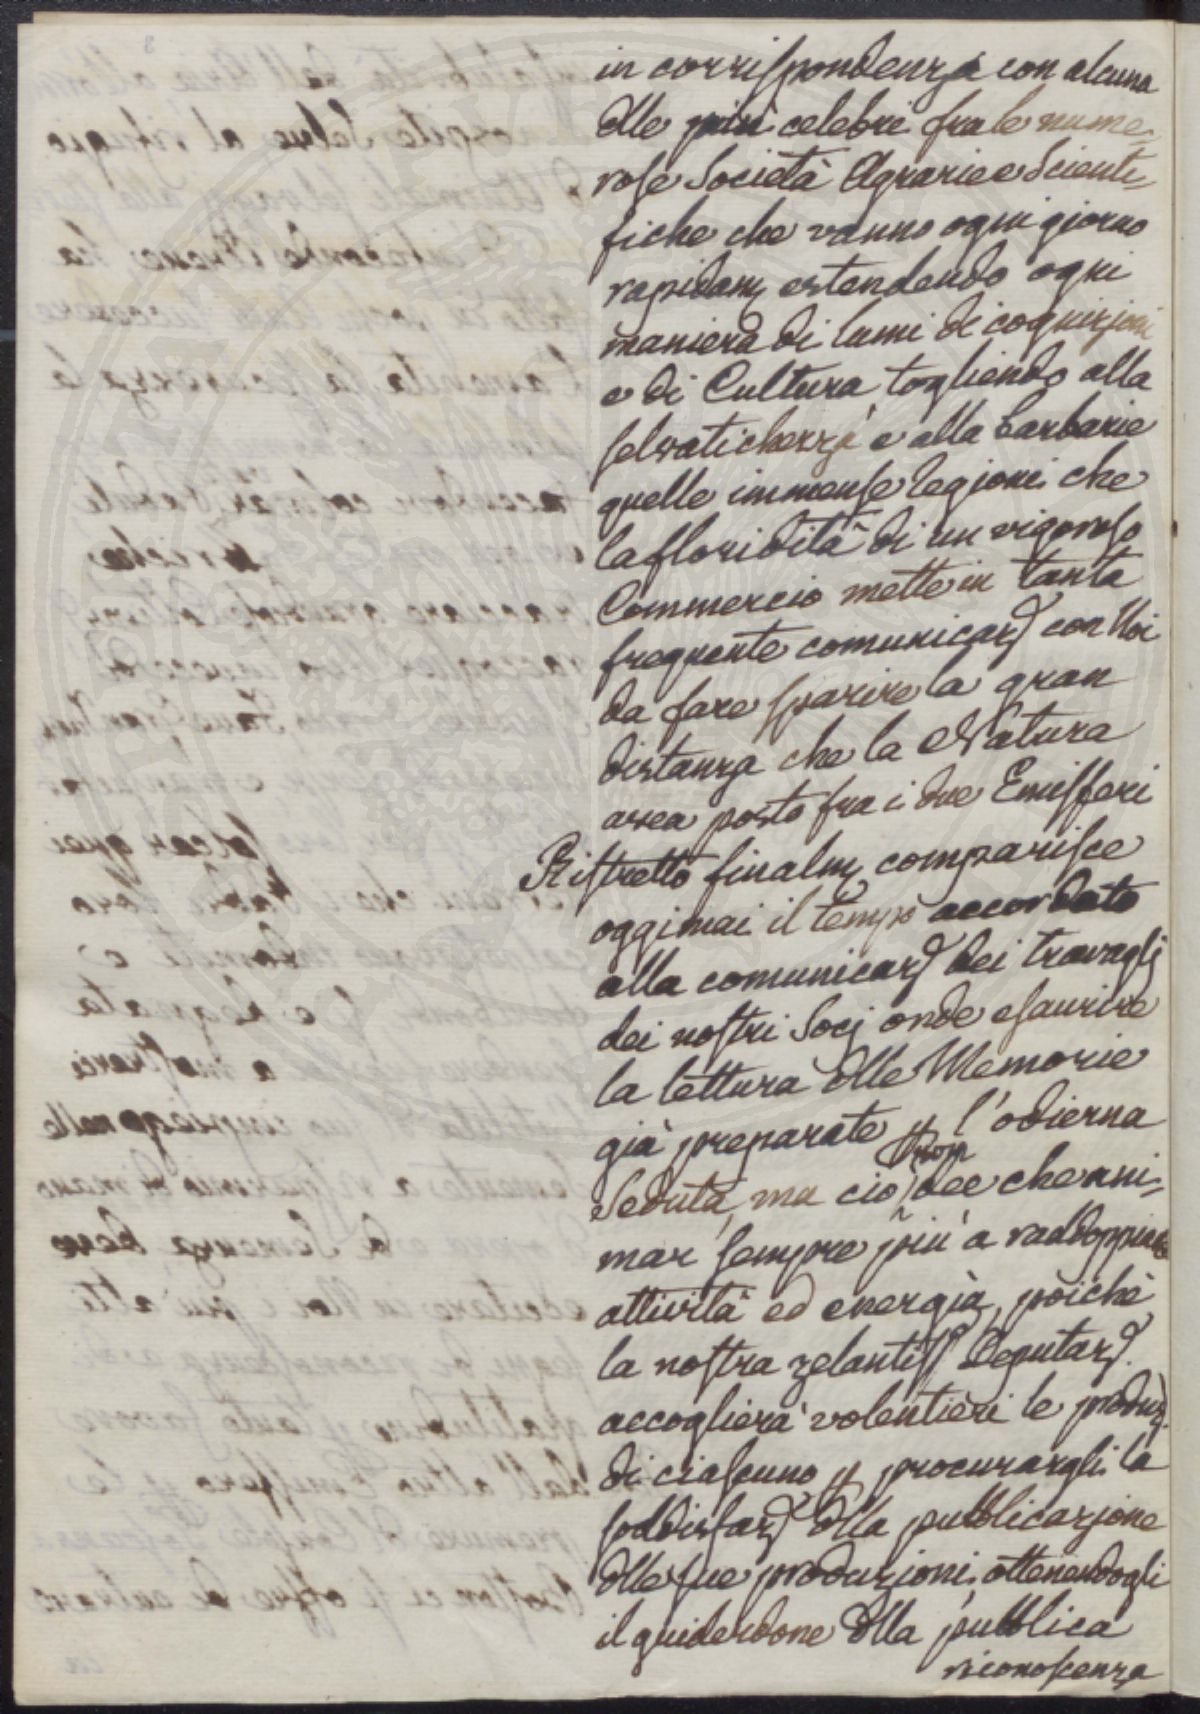 in corrispondenza con alcuna
dlle più celebri fra le nume=
rose Società Agrarie e Scienti=
fiche che vanno ogni giorno
rapidam estendendo ogni
maniera di lumi di cognizioni
e di Cultura togliendo alla
selvatichezza e alla barbarie
quelle immense legioni che
la floridità di un vigoroso
Commercio mette in tanta
frequente comunicaz con Noi
da fare sparire la gran
distanza che la Natura
avea posto fra i due Emisferi
Ristretto finalm comparisce
oggimai il tempo accordato
alla comunicaz dei travagli
dei nostri Socj onde esaurire
la lettura dlle Memorie
già preparate p l'odierna
Seduta, ma ciò non dee che ani=
mar sempre più a raddoppiare
attività ed energia, poichè
la nostra zelantiss Deputaz.
accoglierà volentieri le produz.
di ciascuno p procurargli la
soddisfaz dlla pubblicazione
dlle sue produzioni ottenendogli
il guiderdone dlla pubblica
riconoscenza